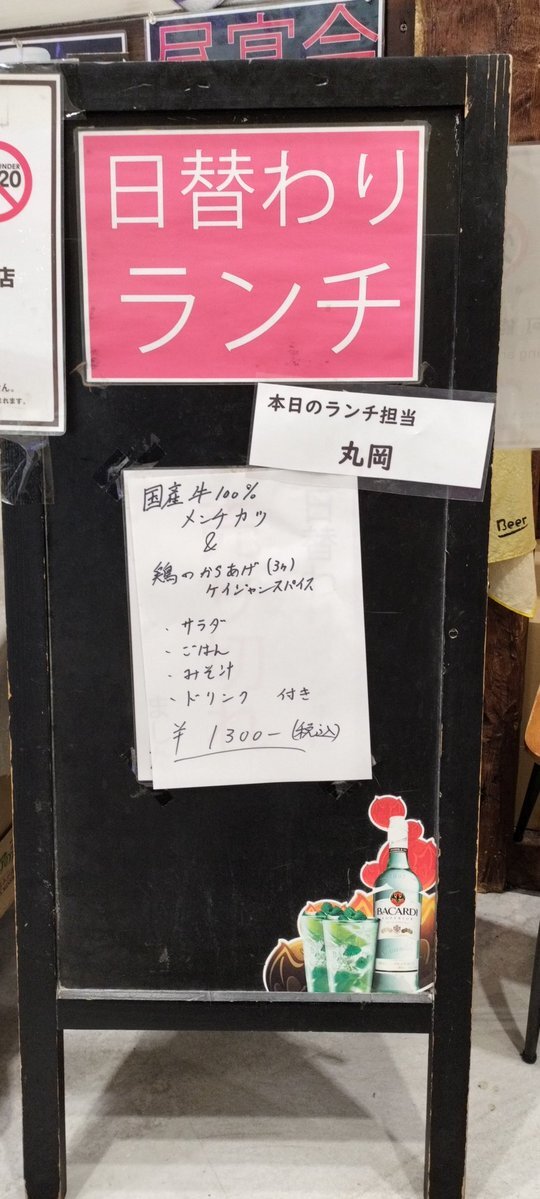 昼宴会
UNDER
20
店
日替わり
ランチ
ん。
本日のランチ担当
丸岡
国産牛100%
メンチカツ
&
鶏のからあげ(3ヶ)
ケイジャンスパイス
・サラダ
・ごはん
・みそ汁
・ドリンク 付き
¥1300-(税込)
Beer
BACARDI
SUPERIOR